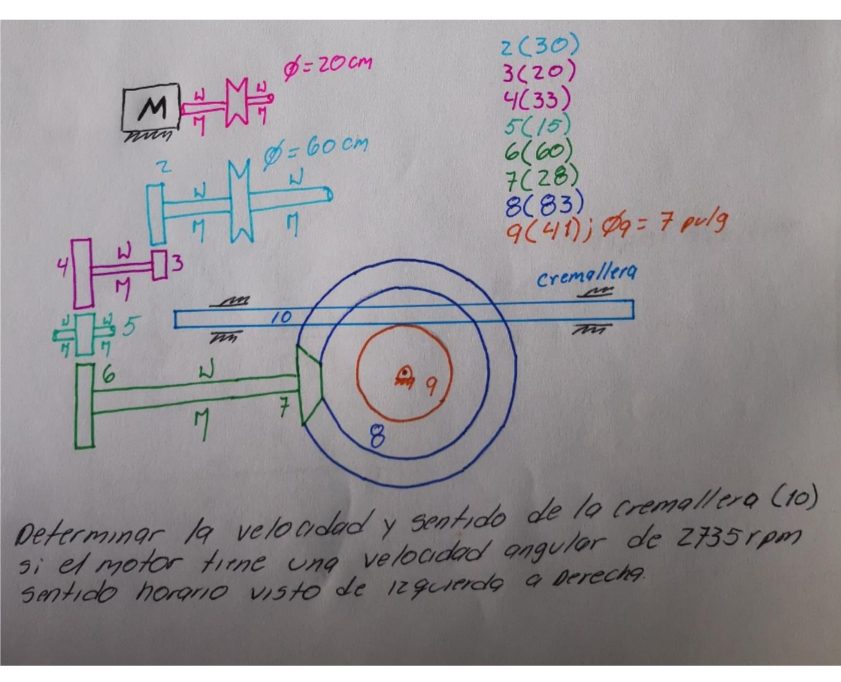 φ=20cm
M
W
W
M
M
φ=60 cm
2
W
W
M
M
4
W
3
M
W
W
5
M
M
6
W
7
M
8
9
10
cremallera
2(30)
3(20)
4(33)
5(15)
6(60)
7(28)
8(83)
9(41); φ9= 7 pulg
Determinar la velocidad y sentido de la cremallera (10)
si el motor tiene una velocidad angular de 2735rpm
sentido horario visto de Izquierda a Derecha.